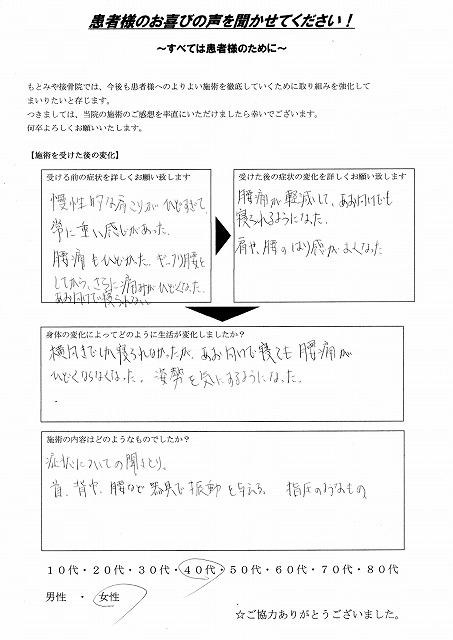 患者様のお喜びの声を聞かせてください!
~すべては患者様のために~
もとみや接骨院では、今後も患者様へのよりよい施術を徹底していくために取り組みを強化して
まいりたいと存じます。
つきましては、当院の施術のご感想を率直にいただけましたら幸いでございます。
何卒よろしくお願いいたします。
【施術を受けた後の変化】
受ける前の症状を詳しくお願い致します
慢性的な肩こりがひどすぎて、
常に重い感じがあった。
腰痛もひどかった。ギックリ腰を
してから、さらに痛みがひどくなった。
あお向けで寝られない
受けた後の症状の変化を詳しくお願い致します
腰痛が軽減して、あお向けでも
寝られるようになった。
肩や、腰のはり感がよくなった
身体の変化によってどのように生活が変化しましたか?
横向きでしか寝られなかったが、あお向けで寝ても腰痛が
ひどくならなくなった。姿勢を気にするようになった。
施術の内容はどのようなものでしたか?
症状についての聞きとり。
首、背中、腰など器具で振動を与える。 指圧のようなもの
10代・20代・30代・40代・50代・60代・70代・80代
男性 ・ 女性
☆ご協力ありがとうございました。